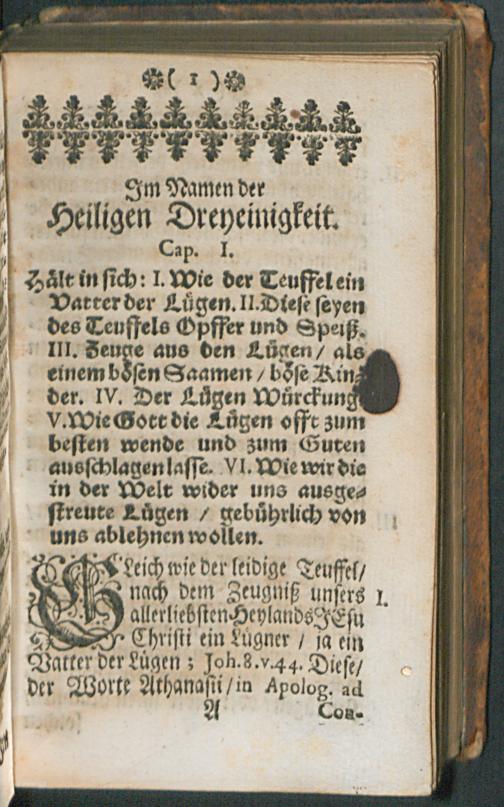 ( 1 )
Im Namen der
Heiligen Dreyeinigkeit.
Cap. I.
Hält in sich: I. Wie der Teuffel ein
Vatter der Lügen. II. Diese seyen
des Teuffels Opffer und Speiß.
III. Zeuge aus den Lügen / als
einem bösen Saamen / böse Kin-
der. IV. Der Lügen Würckung
V. Wie Gott die Lügen offt zum
besten wende und zum Guten
ausschlagen lasse. VI. Wie wir die
in der Welt wider uns ausge-
streute Lügen / gebührlich von
uns ablehnen wollen.
GLeich wie der leidige Teuffel /
nach dem Zeugniß unsers I.
allerliebsten Heylands JEsu
Christi ein Lügner / ja ein
Vatter der Lügen ; Joh. 8. v. 44. Diese /
der Worte Athanasii / in Apolog. ad
A Con-